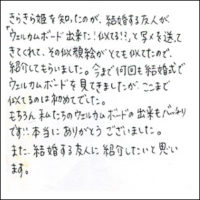 きらきら姫を知ったのが、結婚する友人が
「ウェルカムボード出来た!似てる!?」と写メを送ってきてくれて、その似顔絵がとても似てたので、
紹介してもらいました。今まで何回も結婚式で
ウェルカムボードを見てきましたが、ここまで
似てるのは初めてでした。
もちろん私たちのウェルカムボードの出来もバッチリ
です!!本当にありがとうございました。
また、結婚する友人に紹介したいと思い
ます。